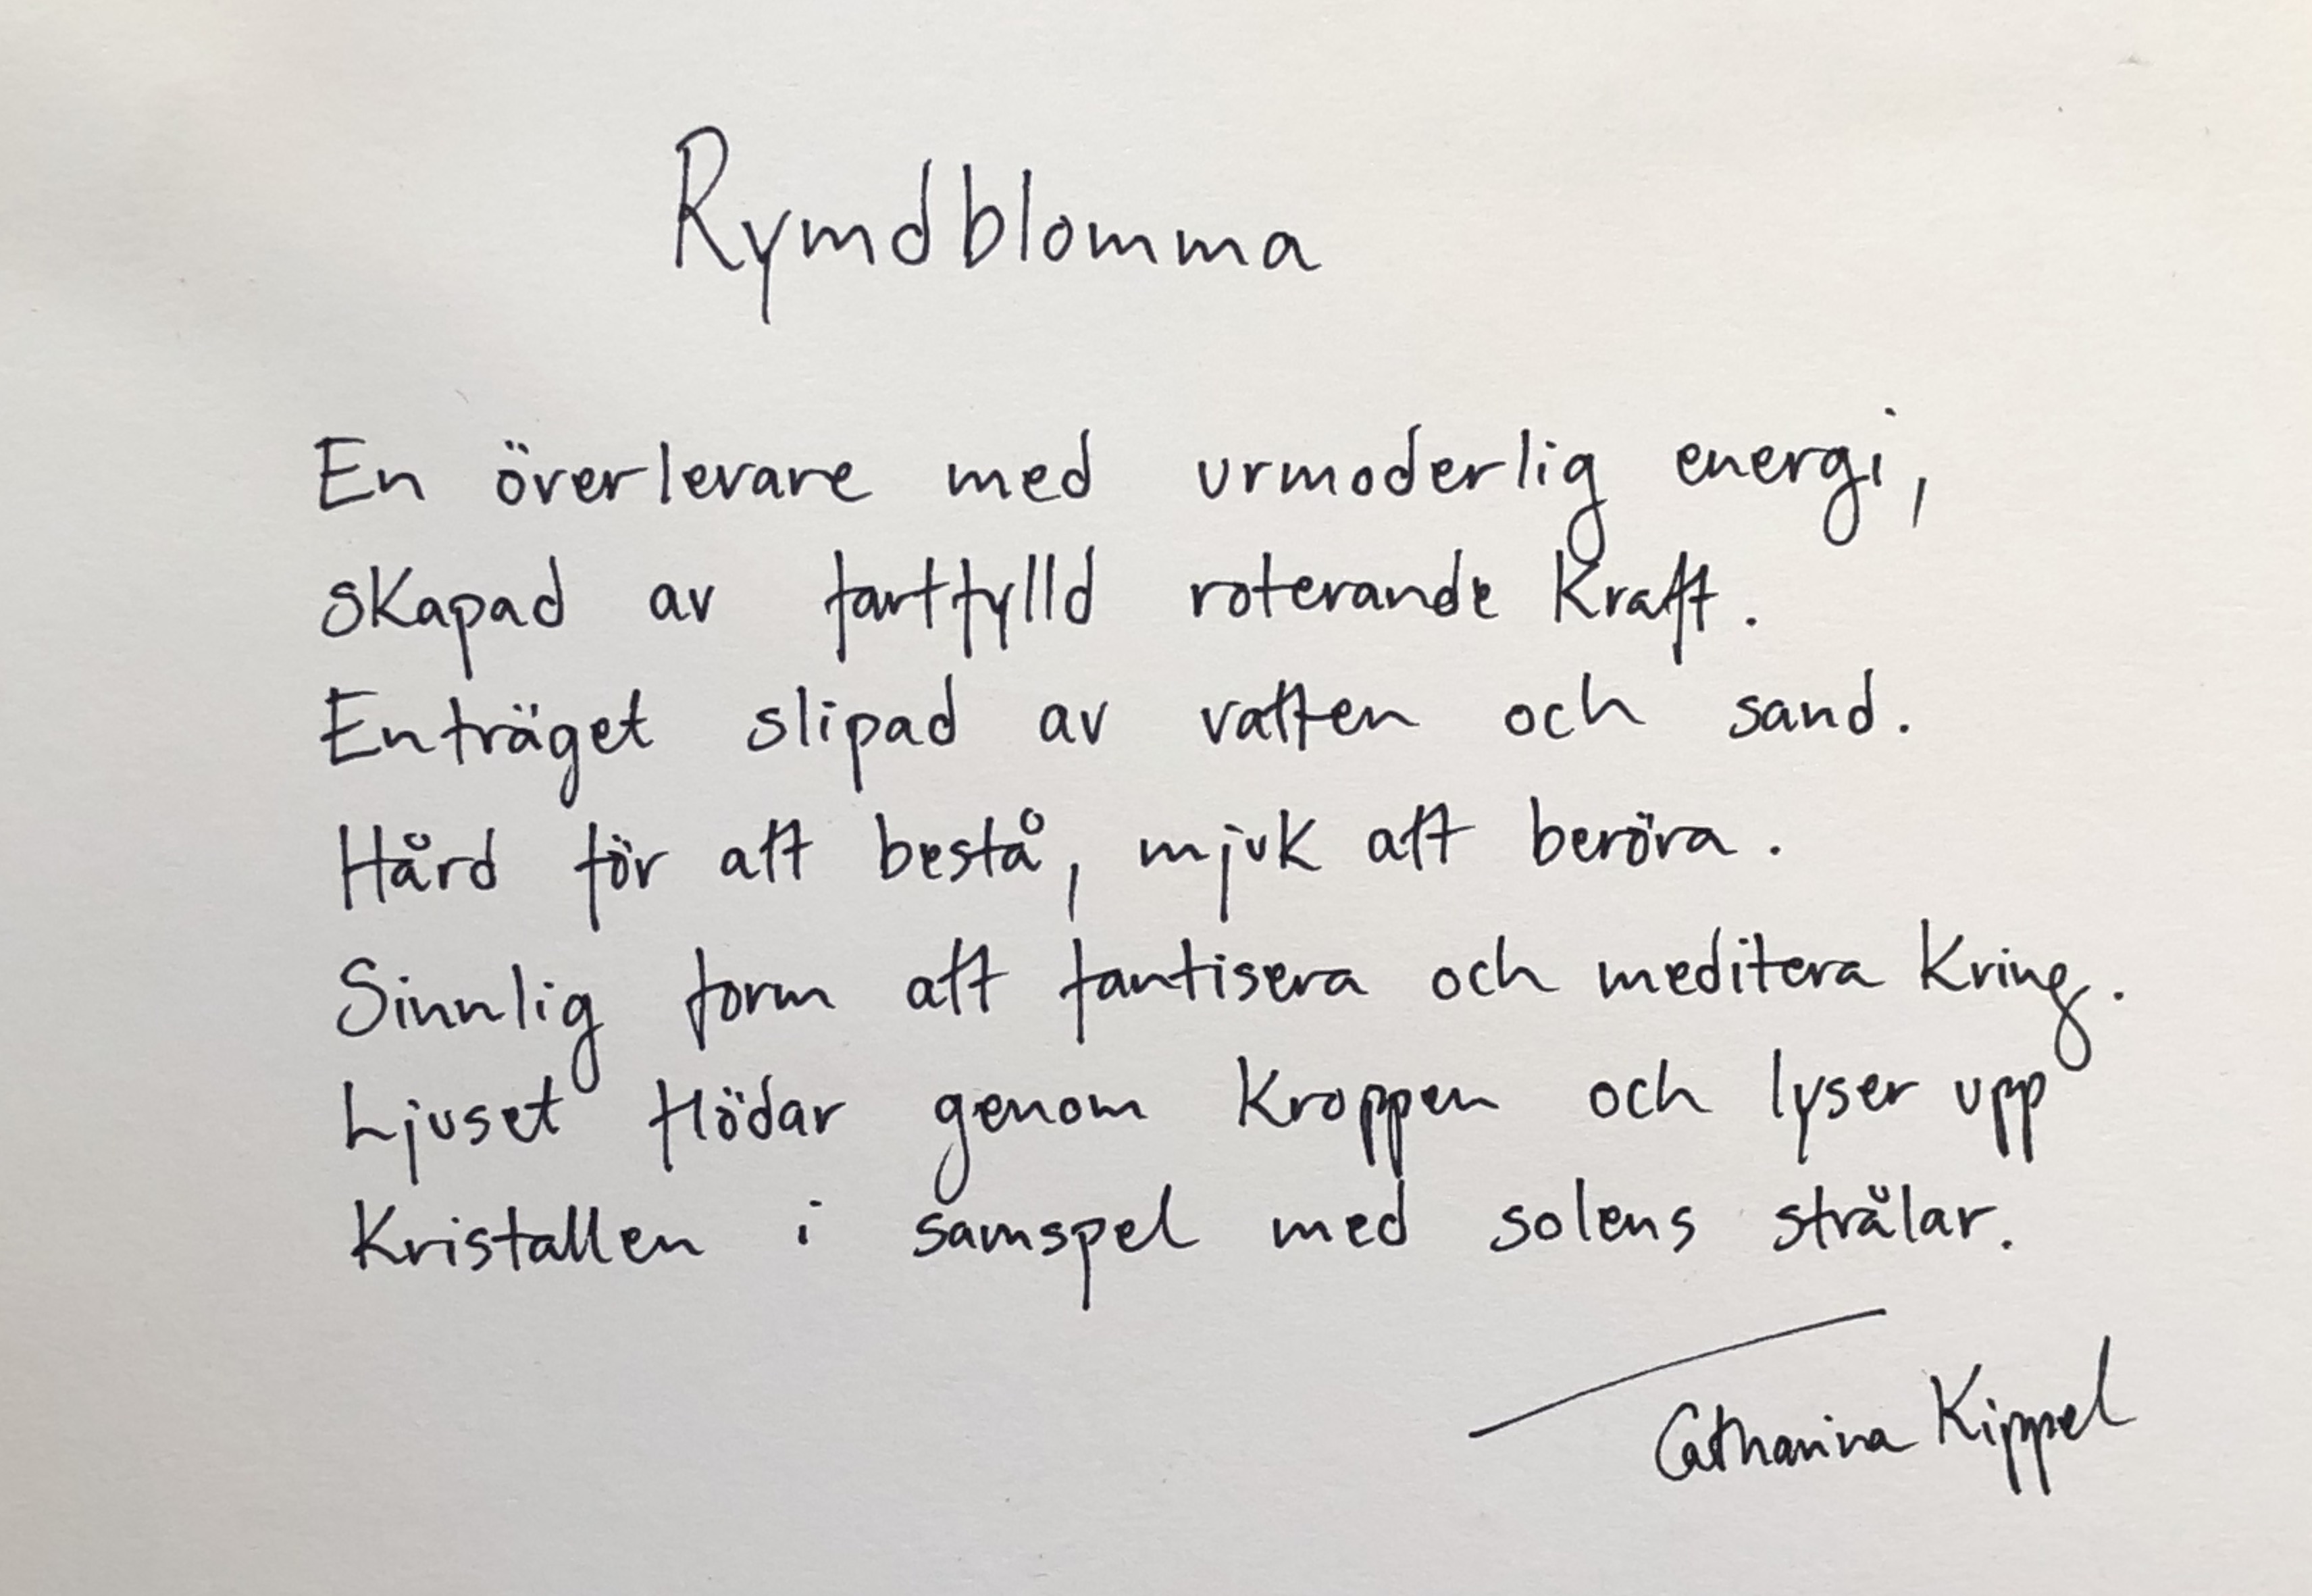 Rymdblomma
En överlevare med urmoderlig energi,
skapad av fartfylld roterande kraft.
Enträget slipad av vatten och sand.
Hård för att bestå, mjuk att beröra.
Sinnlig form att fantisera och meditera kring.
Ljuset flödar genom kroppen och lyser upp
kristallen i samspel med solens strålar.
Catharina Kippel